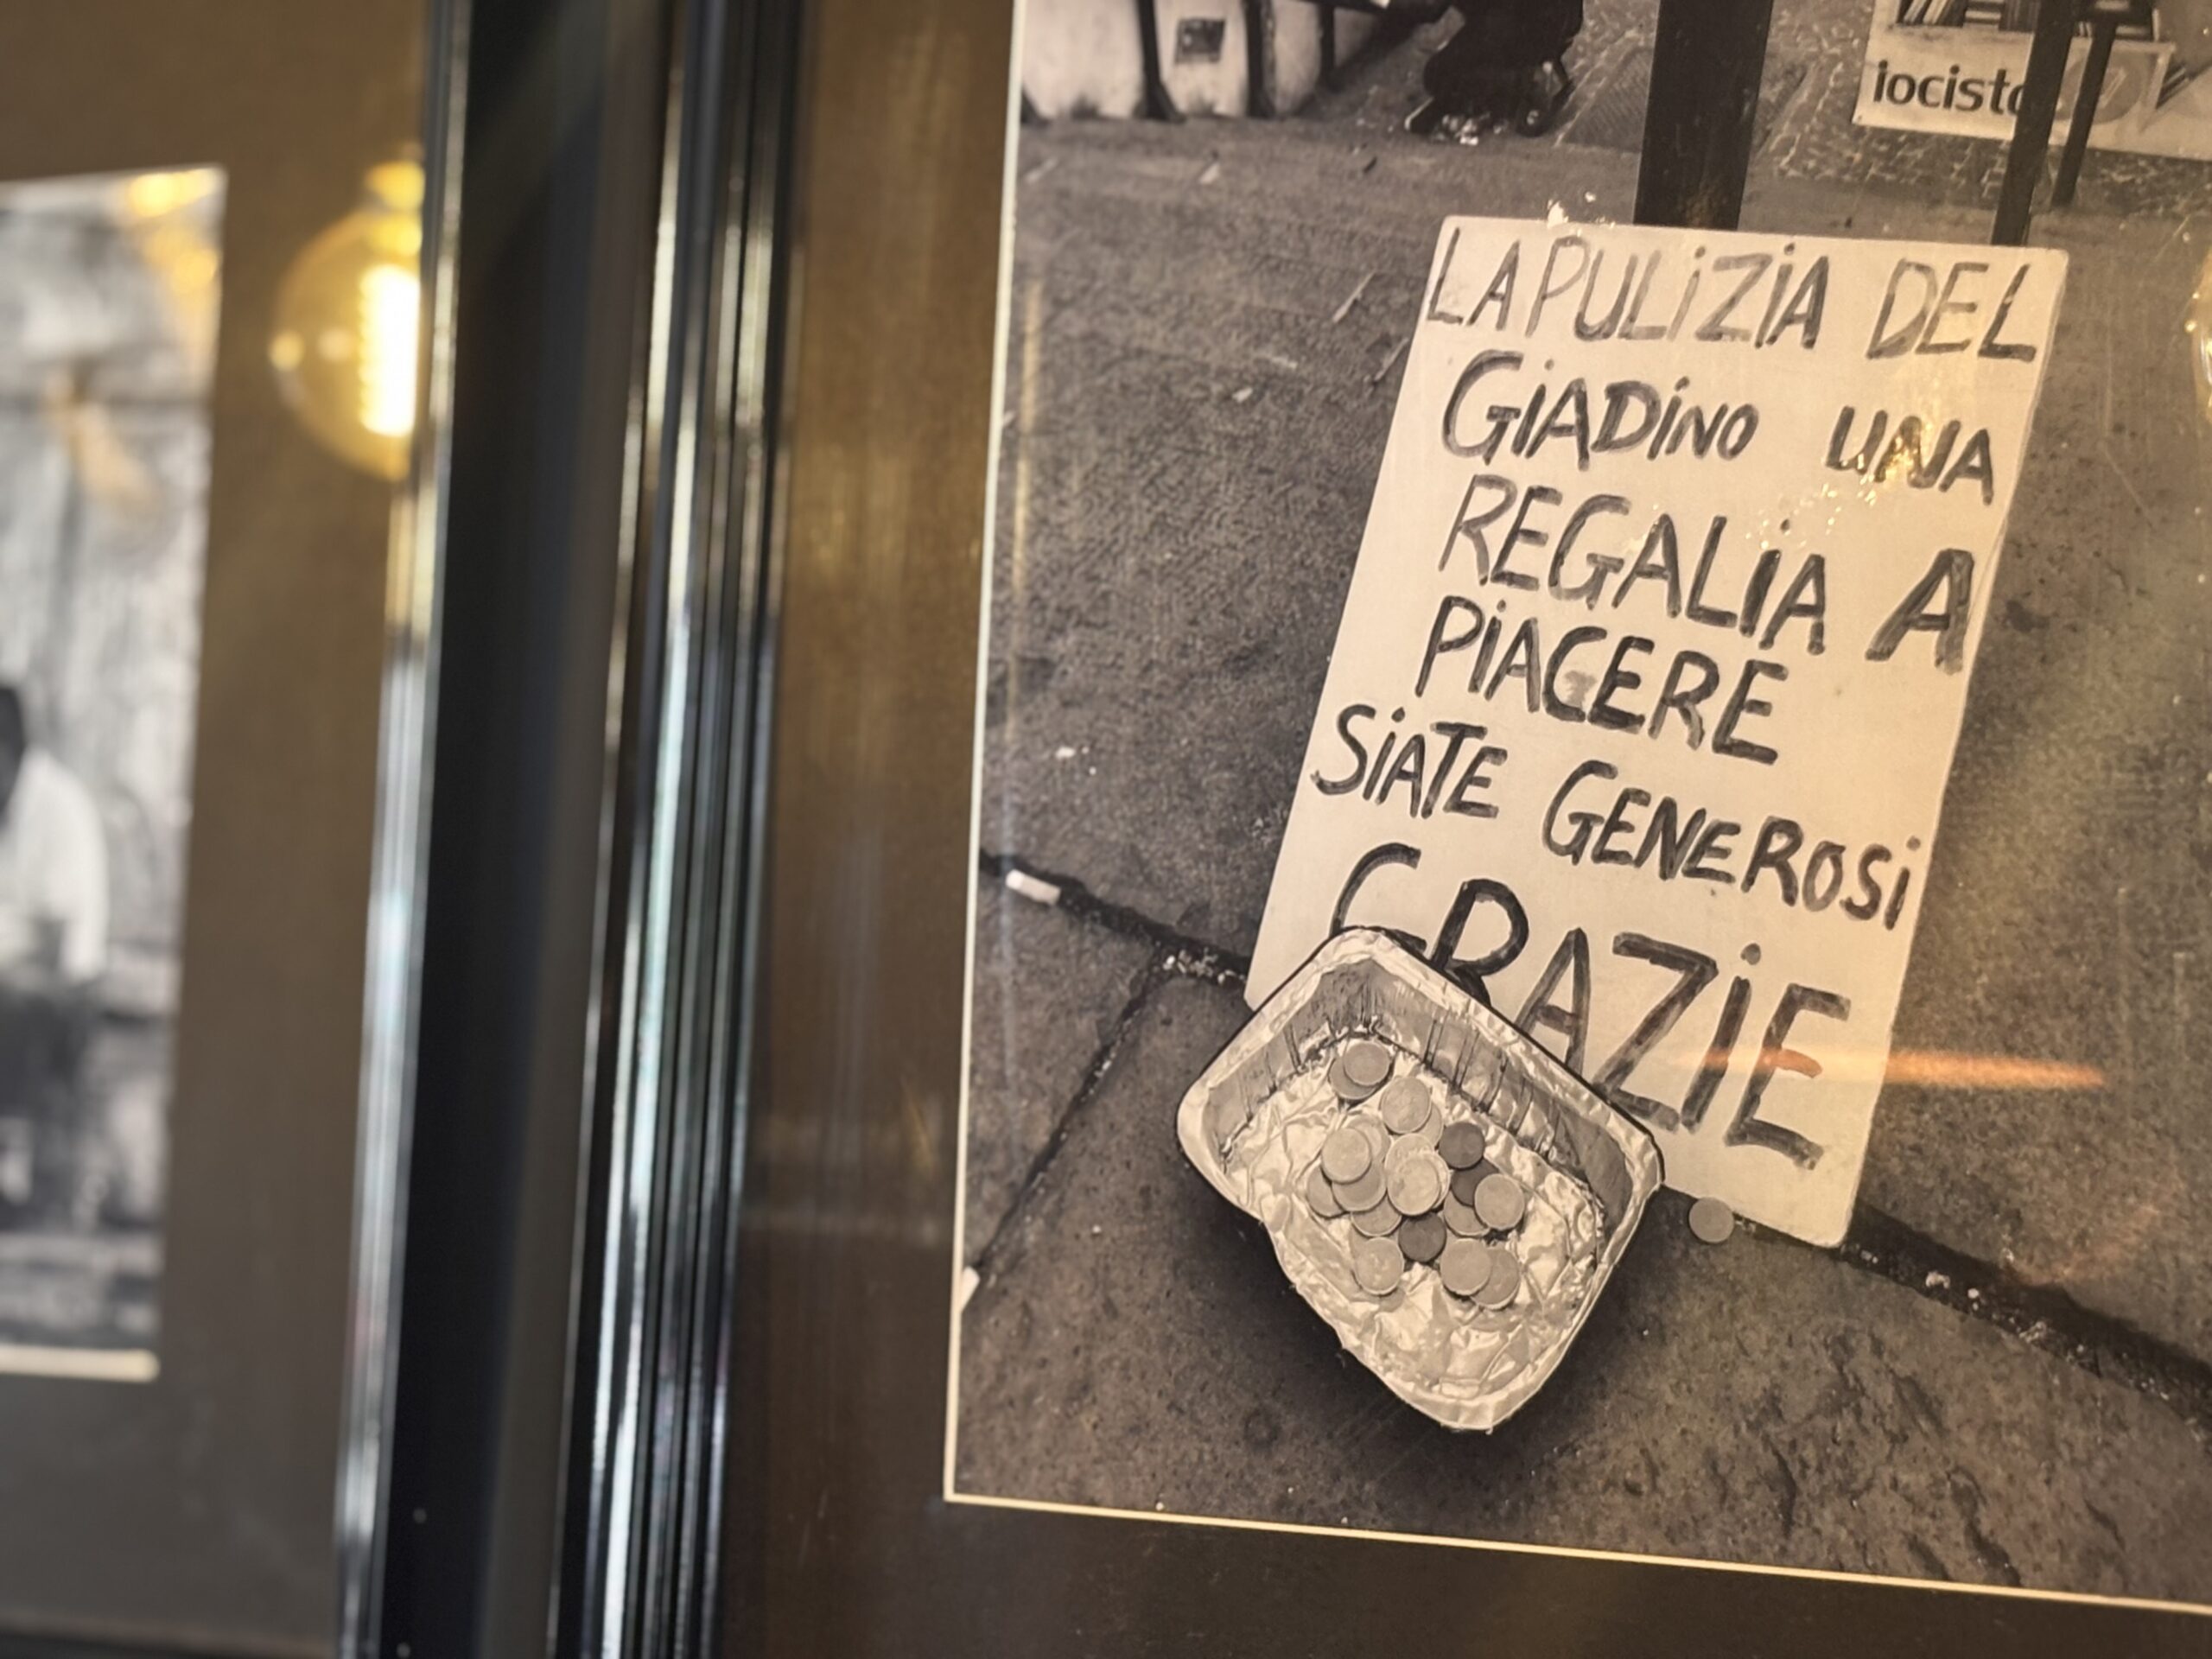 iocisto
LA PULIZIA DEL
GIADINO UNA
REGALIA A
PIACERE
SIATE GENEROSI
GRAZIE